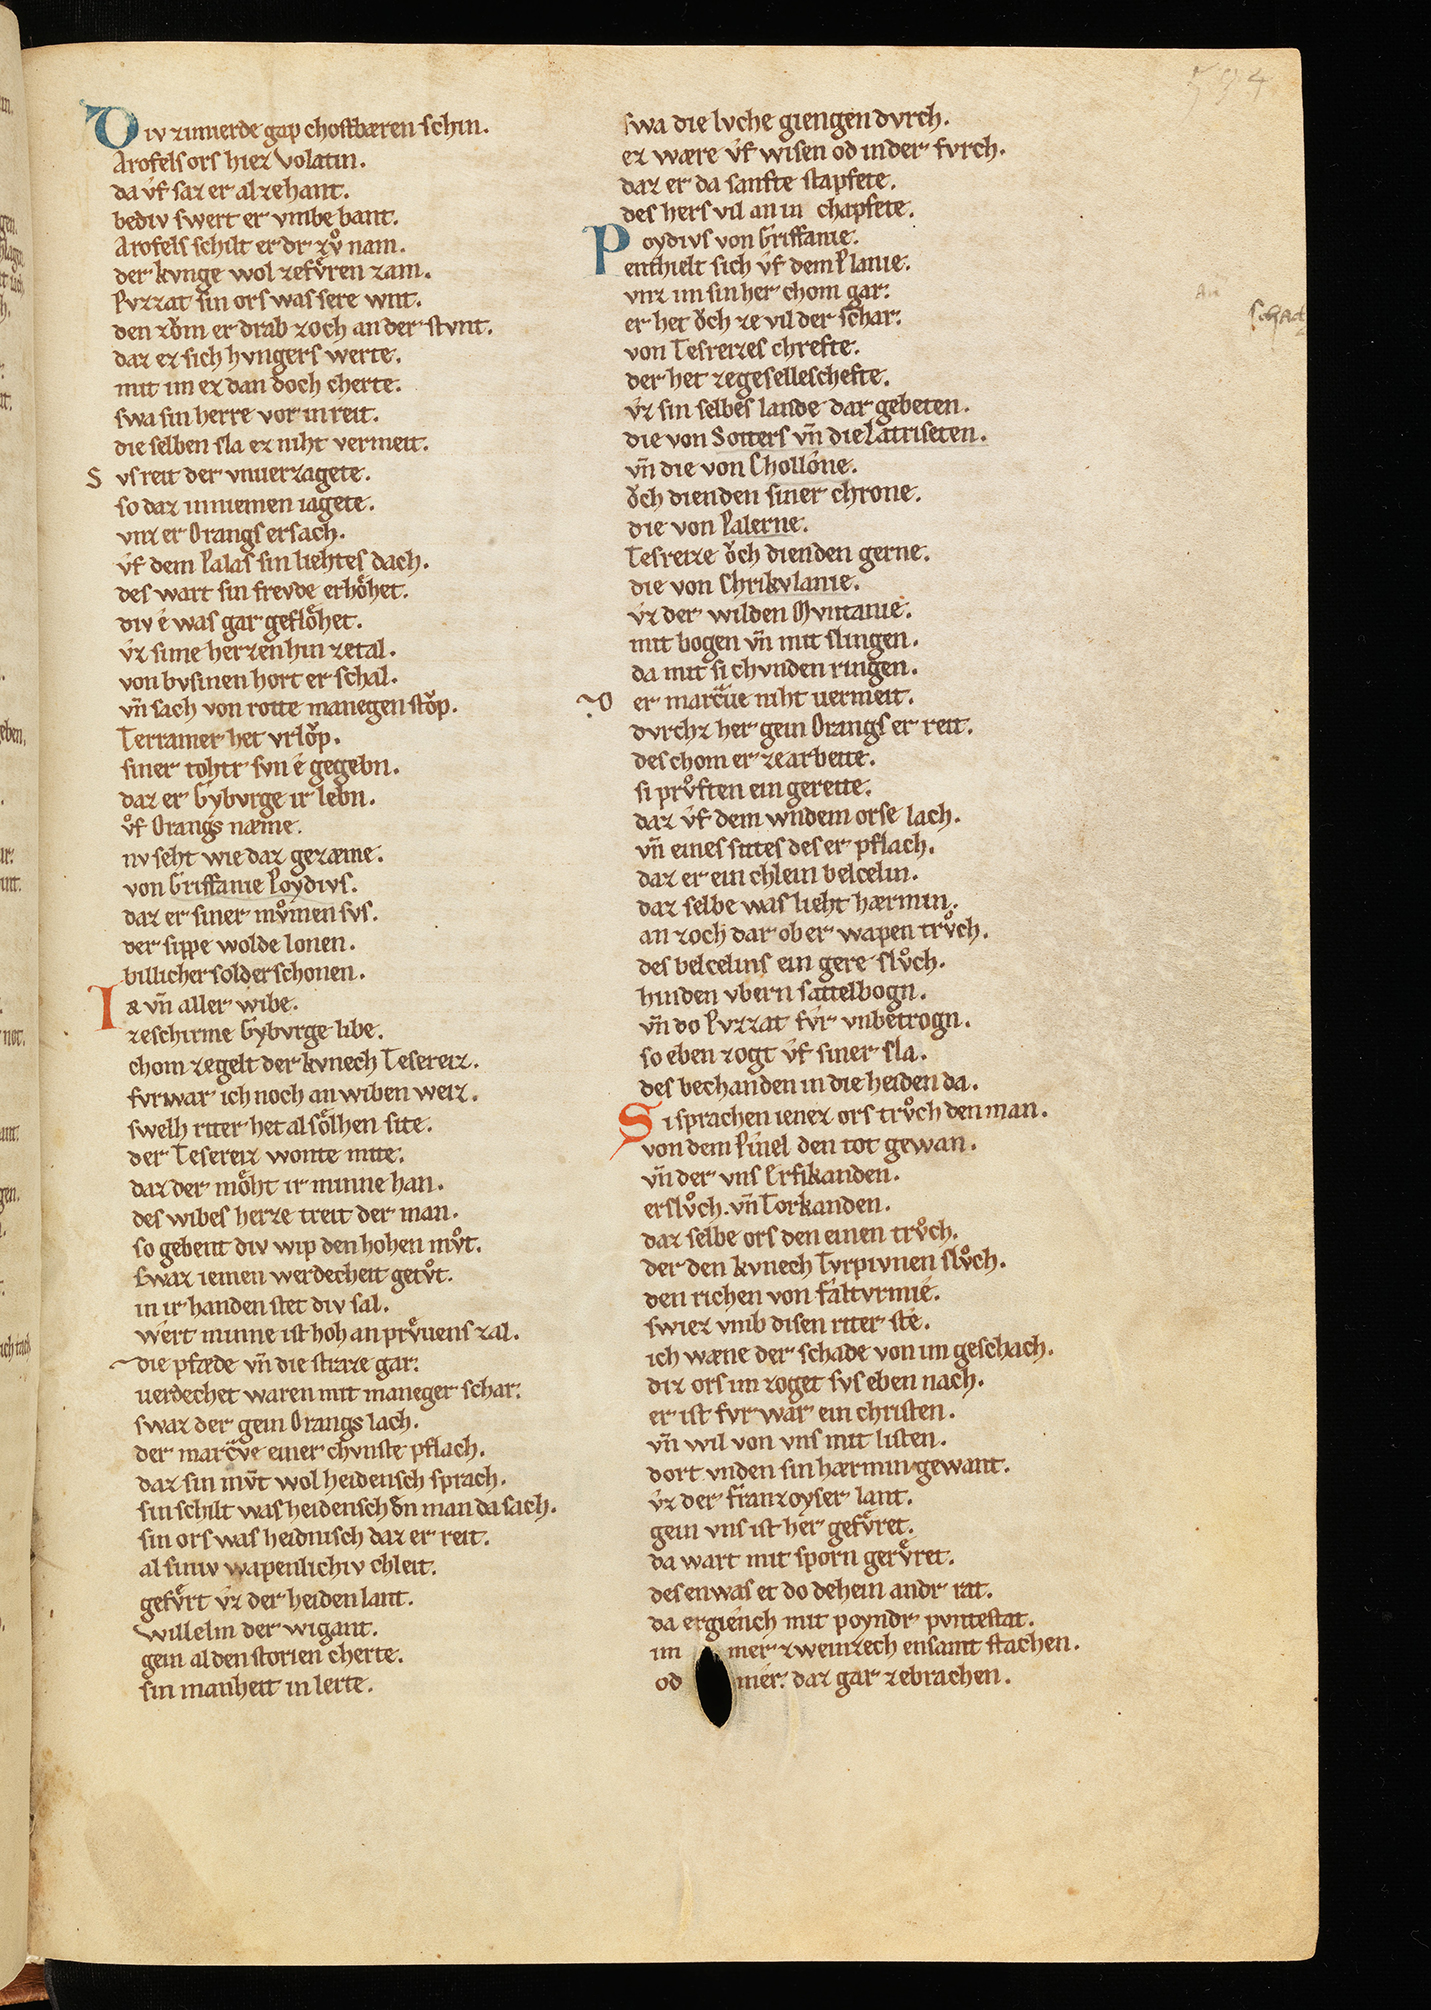 594
Div zimierde gap chostbæren schin.
Arofels ors hiez volatin.
da vf saz er al zehant.
bediv swert er vmbe bant.
Arofels schilt er dr zvͦ nam.
der kvnge wol zefvͤren zam.
Pvzzat sin ors was sere wnt.
den zoͮm er drab zoch an der stvnt.
daz ez sich hvngers werte.
mit im ez dan doch cherte.
swa sin herre vor in reit.
die selben sla ez niht vermeit.
Svs reit der vnuerzagete.
so daz in niemen iagete.
vnz er Orangs ersach.
vf dem Palas sin liehtes dach.
des wart sin frevde erhoͤhet.
div é was gar gefloͤhet.
vz sime herzen hin zetal.
von bvsinen hort er schal.
vn̄ sach von rotte manegen stoͮp.
Terramer het vrloͮp.
siner tohtr svn é gegebn.
daz er Gybvrge ir lebn.
vf Orangs næme.
nv seht wie daz gezæme.
von Griffanie Poydivs.
daz er siner mvͦmen svs.
der sippe wolde lonen.
billicher solder schonen.
Ia vn̄ aller wibe.
zeschirme Gybvrge libe.
chom zegelt der kvnech Tesereiz.
fvrwar ich noch an wiben weiz.
swelh riter het al soͤlhen site.
der Tesereiz wonte mite.
daz der moͤht ir minne han.
des wibes herze treit der man.
so gebent div wip den hohen mvͦt.
swaz iemen werdecheit getvͦt.
in ir handen stet div sal.
wert minne ist hoh an prvͤuens zal.
die pfæde vn̄ die straze gar.
uerdechet waren mit maneger schar.
swaz der gein Orangs lach.
der marcͣve einer chvnste pflach.
daz sin mvͦt wol heidensch sprach.
sin schilt was heidensch dn̄ man da sach.
sin ors was heidnisch daz er reit.
al siniv wapenlichiv chleit.
gefvͤrt vz der heiden lant.
willelm der wigant.
gein al den storien cherte.
sin manheit in lerte.
swa die lvche giengen dvrch.
ez wære vf wisen od in der fvrch.
daz er da sanfte stapfete.
des hers vil an in chapfete.
Poydivs von Griffanie.
enthielt sich vf dem Planie.
vnz im sin her chom gar.
er het oͮch ze vil der schar.
von Tesreizes chrefte.
der het zegeselleschefte.
vz sin selbes lande dar gebeten.
die von Sotters vn̄ die Latriseten.
vn̄ die von Chollone.
oͮch dienden siner chrone.
die von Palerne.
Tesreize oͮch dienden gerne.
die von Chrikvlanie.
vz der wilden Qvintanie.
mit bogen vn̄ mit slingen.
da mit si chvnden ringen.
Der marcͣue niht uermeit.
dvrchz her gein Orangs er reit.
des chom er zearbeite.
si prvͦften ein gereite.
daz vf dem wndem orse lach.
vn̄ eines sites des er pflach.
daz er ein chlein belcelin.
daz selbe was lieht hærmin.
an zoch dar ob er wapen trvͦch.
des belcelins ein gere slvͦch.
hinden vbern sattelbogn.
vn̄ do Pvzzat fvr vnbetrogn.
so eben zogt vf siner sla.
des bechanden in die heiden da.
Si sprachen ienez ors trvͦch den man.
von dem Pinel den tot gewan.
vn̄ der vns Erfikanden.
erslvͦch. vn̄ Torkanden.
daz selbe ors den einen trvͦch.
der den kvnech Tvrpivnen slvͦch.
den richen von faltvrmie.
swiez vmb disen riter ste.
ich wæne der schade von im geschach.
diz ors im zoget svs eben nach.
er ist fvr war ein christen.
vn̄ wil von vns mit listen.
dort vnden sin hærmin gewant.
vz der franzoyser lant.
gein vns ist her gefvͤret.
da wart mit sporn gervͤret.
des enwas et do dehein andr rat.
da ergiench mit poyndr pvntestat.
im mer zweinzech ensamt stachen.
od mer. daz gar zebrachen.